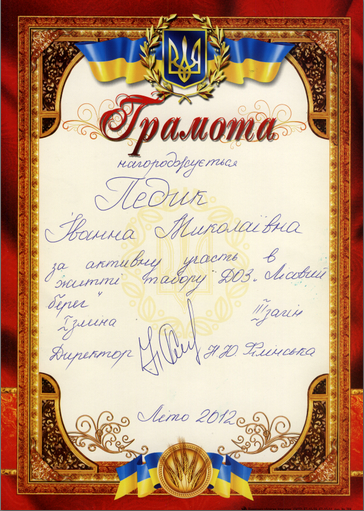 Грамота
нагороджується
Педик
Іванна Миколаївна
за активну участь в
житті табору ДОЗ „Лісовий
берег"
I зміна III загін
Директор Н.Ю.
Літо 2012